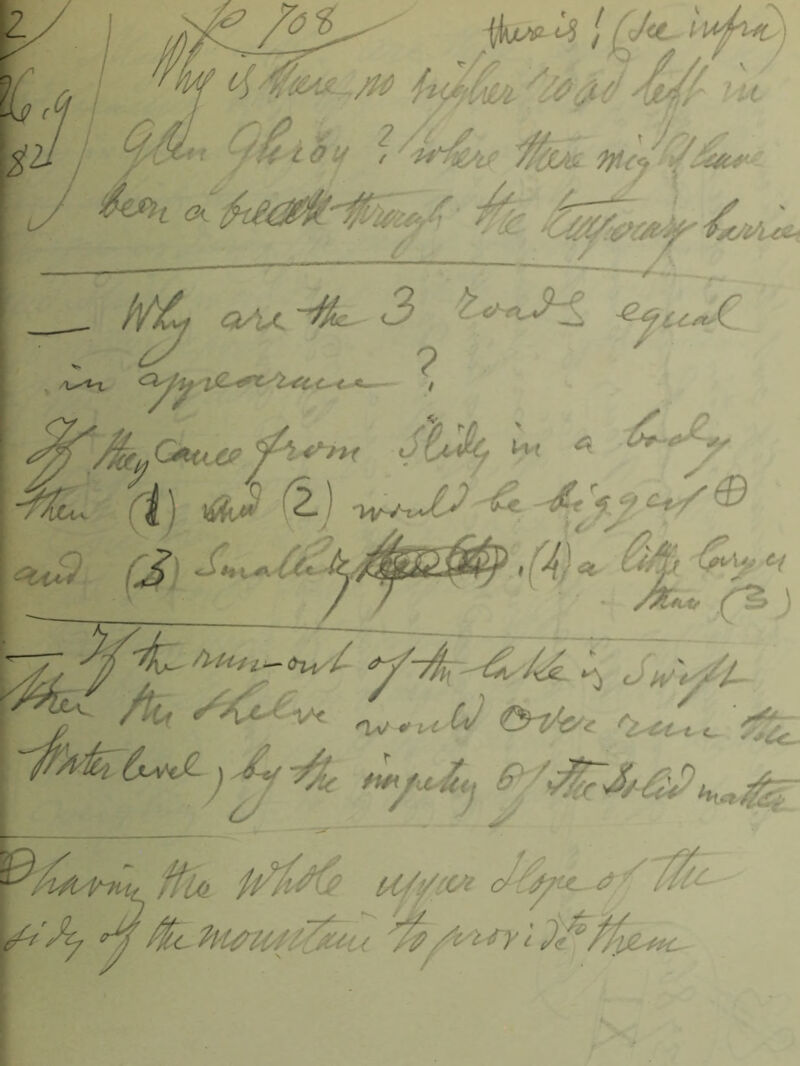 2
p 708
there is! (See infra)
Why is there no higher road left in
Glen Gluroy? where there might have
82
been a break through the temporary barrier
— Why are the 3 roads equal
in appearance?
If they came from Slide in a body
then (1) and (2) would be biggest ⊕
and (3) Smaller, (4) a little larger
than (3)
— If the run-out of the lake is Swift
then the shelve would over run the
Water level, by the impetus of the Solid matter
⊕ having the whole upper slope of the
side of the mountain to provide to them